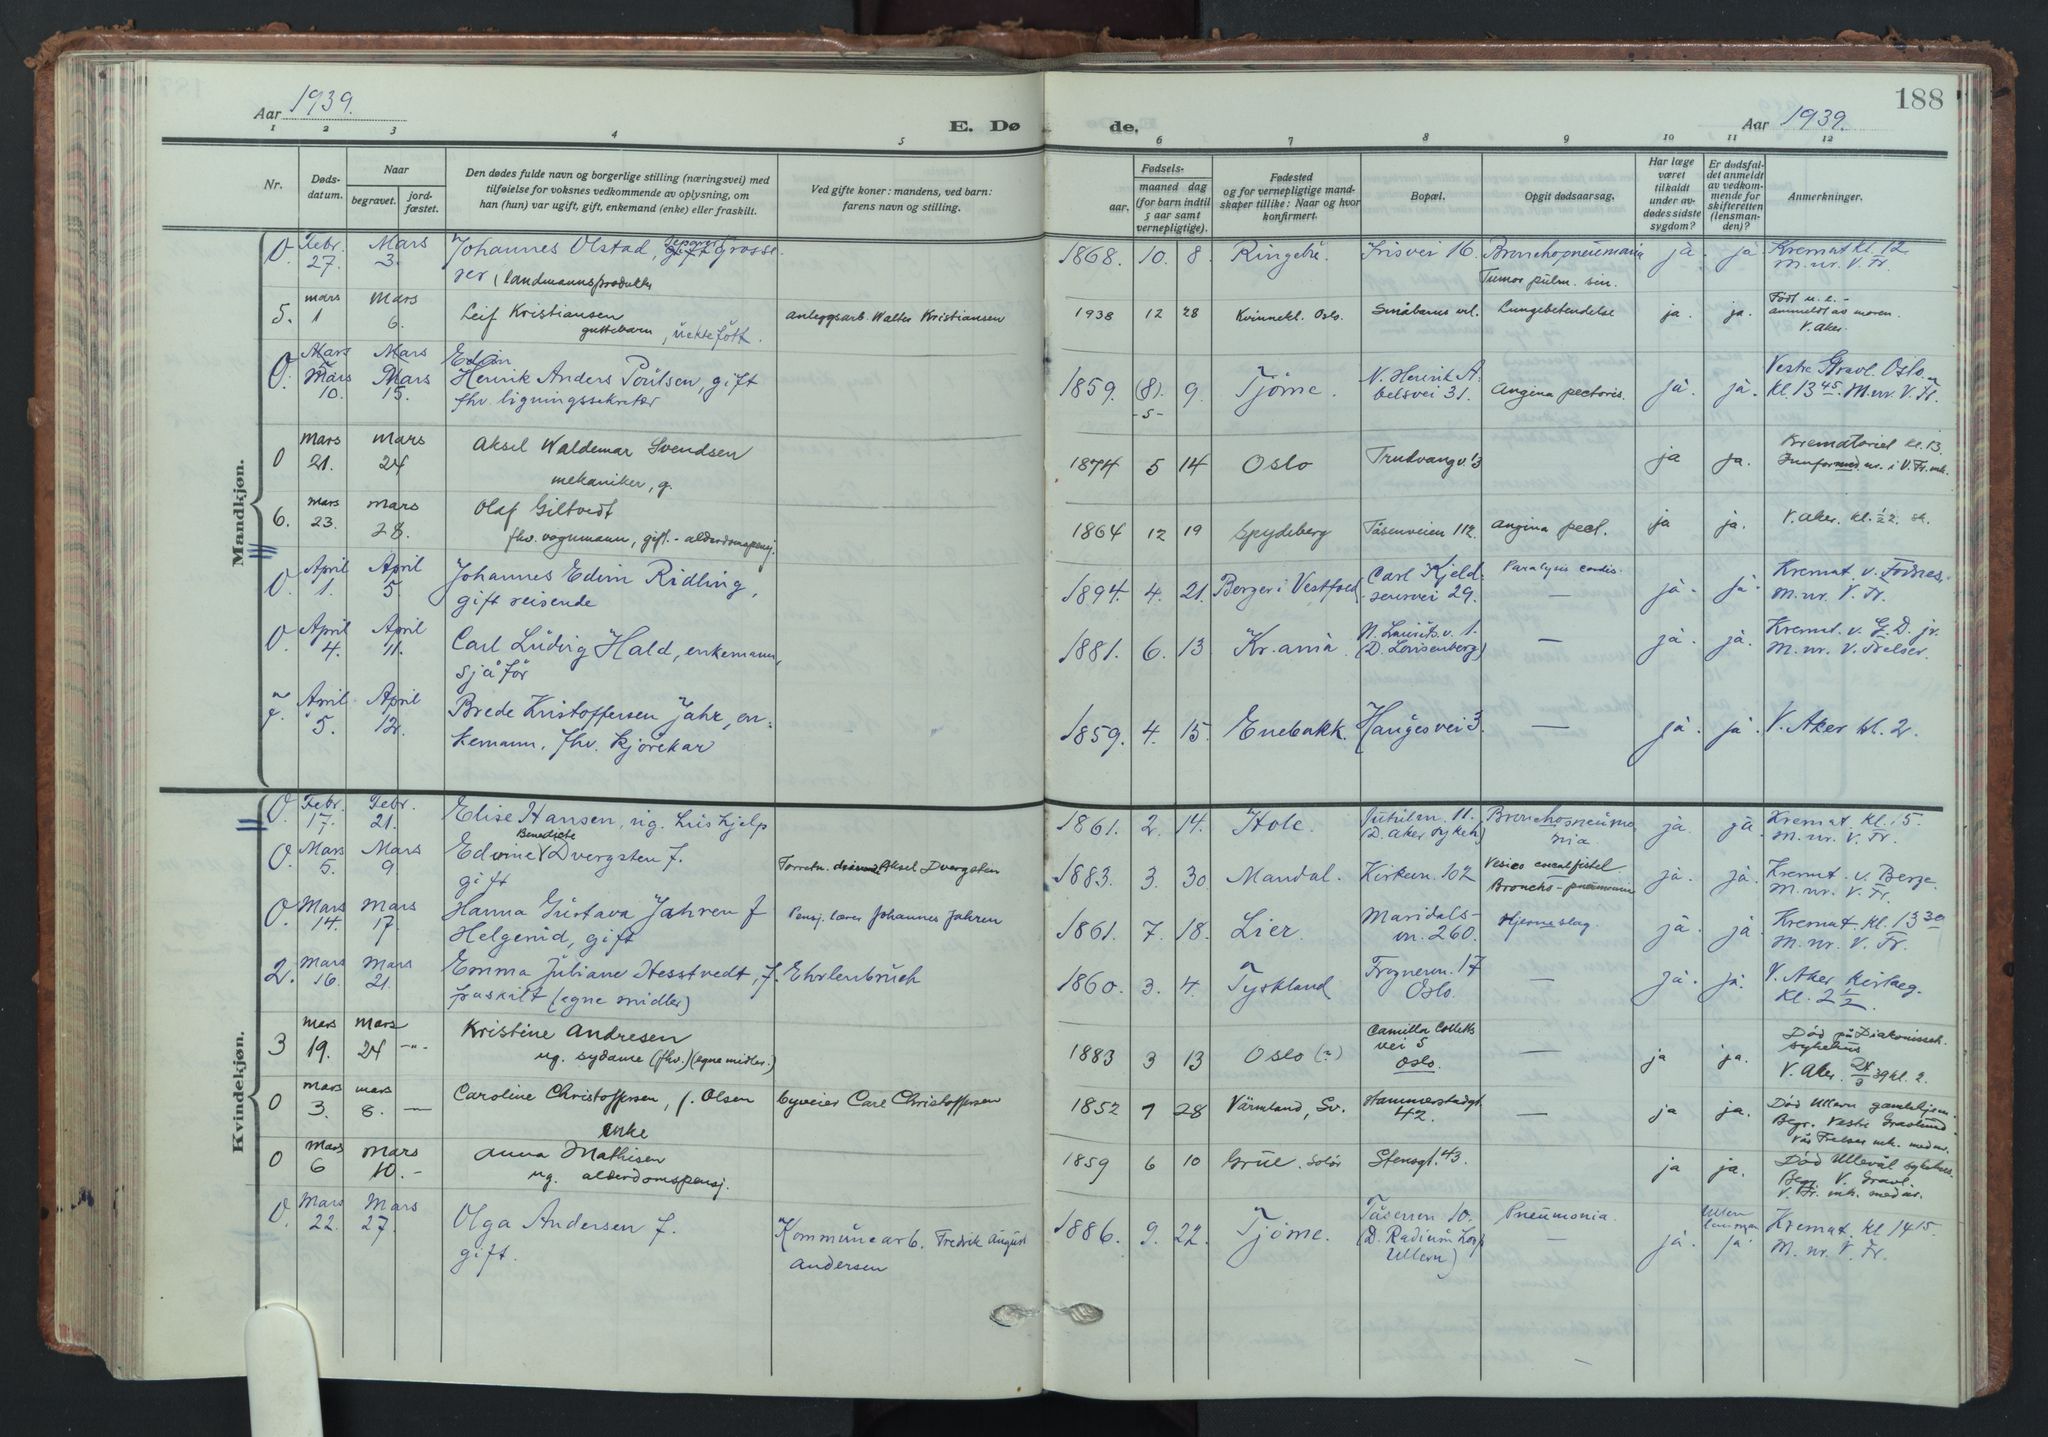 Aar 1939.
E. Døde.
188
Aar 1939.
1 2 3 4 5 6 7 8 9 10 11 12
Nr.
Dødsdatum.
Naar
begravet.
jordfæstet.
Den dødes fulde navn og borgerlige stilling (næringsvei) med
tilføielse for voksnes vedkommende av oplysning, om
han (hun) var ugift, gift, enkemand (enke) eller fraskilt.
Ved gifte koner: mandens, ved barn:
farens navn og stilling.
Fødsels-
aar.
maaned dag
(for barn indtil
5 aar samt
vernepligtige).
Fødested
og for vernepligtige mandskaper tillike: Naar og hvor
konfirmert.
Bopæl.
Opgit dødsaarsag.
Har læge
været
tilkaldt
under avdødes sidste
sygdom?
Er dødsfaldet anmeldt
av vedkommende for
skifteretten
(lensmanden)?
Anmerkninger.
Mandkjøn.
0. Febr. 27. Mars 3. Johannes Olstad, separert gift Grosserer (landmannsprodukter 1868. 10. 8. Ringebu. Irisvei 16. Bronchopneumonia Tumor pulm. sin. ja. ja. Kremat kl. 12 M. nr. V. Fr.
5. mars 1 mars 6. Leif Kristiansen guttebarn, uekte født. anleggsarb. Walter Kristiansen 1938 12 28 Kvinnekl. Oslo. Småbarns Lungebetendelse ja. ja. Født u. e. - anmeldt av moren. V. Aker.
0. Mars Mars 10. Mars Mars 15. Edvin Henrik Anders Poulsen, gift fhv. ligningssekretær 1859. (8). -5- 9. Tjöme. N. Henrik Abelsvei 31. Angina pectoris. ja. ja. Vestre Gravl. Oslo. kl. 13 45. M. nr. V. Fr.
0 Mars 21. mars 24 Aksel Waldemar Svendsen mekaniker, g. 1874 5 14 Oslo Trudvangv. 13 ja ja. Krematoriet kl. 13. nr. i V. Fr. mk.
6. mars 23. mars 28. Olaf Giltvedt fhv. vognmann, gift. - alderdomspensj. 1864 12 19 Spydeberg Tåsenveien 112. angina pect. ja ja. V. Aker. kl. 1/2 2.
0. April 1. April 5. Johannes Edvin Ridling, gift reisende 1894. 4. 21. Berger i Vestfold Carl Kjeldsensvei 29. Paralysis cordis. — ja. ja. Kremat. v. M. nr. V. Fr.
0. April 4. April 11. Carl Ludvig Hald, enkemann, sjåför 1881. 6. 13. Kr.ania. N. Lauritz v. 1. (D. Lovisenberg) — ja. ja. Kremt. v. G. D. jr. M. nr. V. Frelser.
7. April 5. April 12. Brede Kristoffersen Jahr, enkemann, fhv. kjörekar 1859. 4. 15. Enebakk. Haugesvei 3. — ja. ja. V. Aker kl. 2.
Kvindekjøn.
0. Febr. 17. Febr. 21. Elise Hansen, ug. hushjelp 1861. 2. 14. Hole. Jutulvn. 11. (D. Aker sykeh) Bronchopneumonia ja. ja. Kremat. kl. 15. M. nr. V. Fr.
0. Mars 5. Mars 9. Edvine Benedicte Dvergsten f. gift Aksel Dvergsten 1883. 3. 30. Mandal. Kirkevn. 102 Vesico fistel Broncho-pneumonia ja. ja. Kremt v. Berge. M. nr. V. Fr.
0. Mars 14. Mars 17. Hanna Gustava Jahren f Helgerud, gift Pensj. lærer Johannes Jahren 1861. 7. 18. Lier. Maridalsvn. 260. Hjerneslag ja. ja. Kremat. kl. 13 30 M. nr. V. Fr.
2. Mars 16. Mars 21. Emma Juliane Hesstvedt, f. Ehrlenbruch fraskilt (egne midler) 1860. 3. 4. Tyskland Frognervn. 17 Oslo. — ja. ja. V. Aker kirkeg. kl. 2 1/2
3 mars 19. mars 24 -"- Kristine Andresen ug. sydame (fhv.) (egne midler.) 1883 3 13 Oslo (?) Camilla Colletts vei 5 Oslo. — ja ja. Död på Diakonisseh. sykehus V. Aker. 24/3 39 kl. 2.
0 mars 3. mars 8. — Caroline Christoffersen, f. Olsen enke Carl Christoffersen 1852 7 28 Värmland, Sv. Hammerstadgt. 42. — ja ja. Död Ullern gamlehjem. Begr. Vestre Gravlund. Vår Frelser mk. med nr.
0 mars 6 mars 10. - Anna Mathisen ug. alderdomspensj. 1859 6 10 Grue. Solör Stensgt. 43. ja ja. Död Ullevål sykehus. Begr V. Gravl. V. Fr. mk. med nr.
0. Mars 22. Mars 27. Olga Andersen f. gift. Kommunearb. Fredrik August Andersen 1886. 9. 22. Tjöme. Tåsenvn. 10. (D. Radium Ullern) Pneumonia — ja. Ullern ja. Kremat. kl 14 15. M. nr. V. Fr.